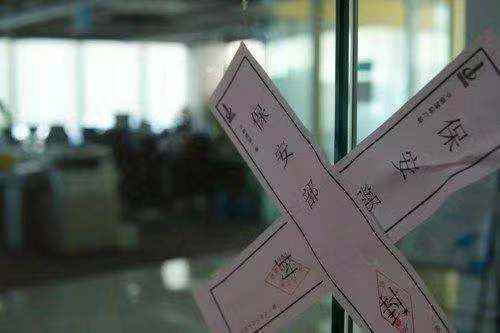 保安部封
保安部封